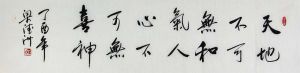 天地
不可
無和
氣人
心不
可無
喜神
丁酉年
梁